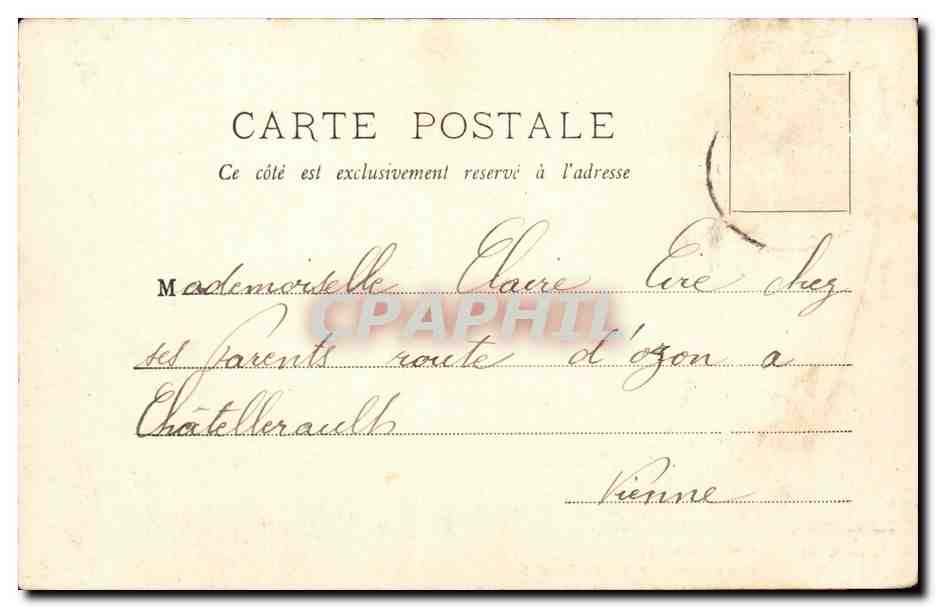 CARTE POSTALE
Ce côté est exclusivement reservé à l'adresse
Mademoiselle Claire Tire chez
CPAPHIL
ses Parents route d'ozon a
Châtellerault
Vienne